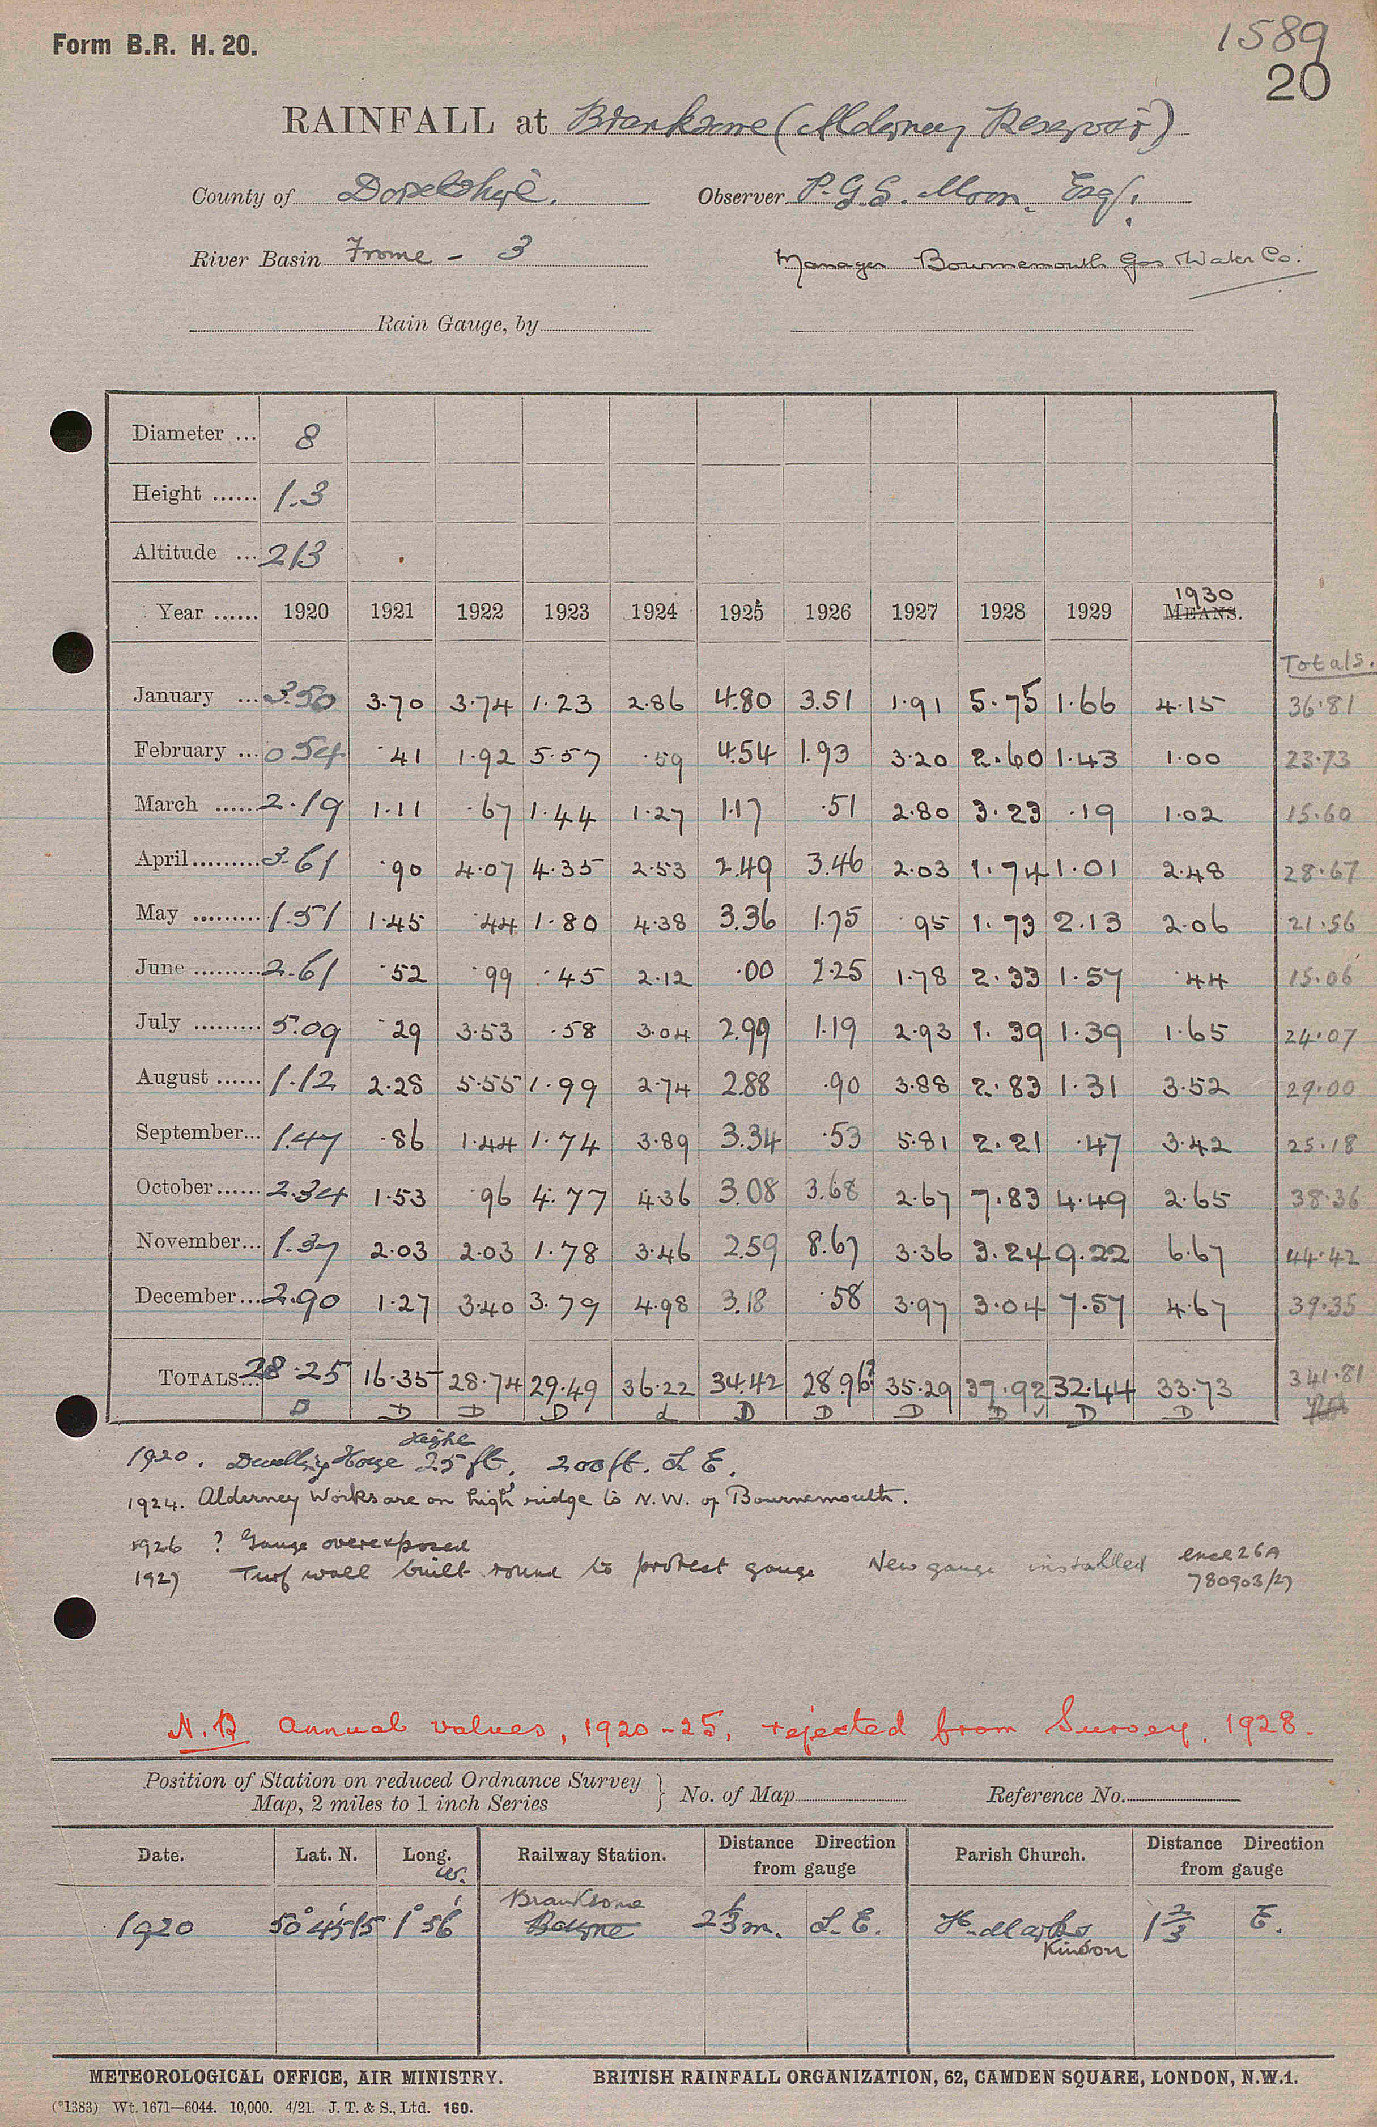 Form B.R. H. 20.
1589
20
RAINFALL at Branksome (Alderney Reservoir)
County of Dorsetshire. Observer P.G.G. Moon. Esq.
River Basin Frome - 3 Manager Bournemouth Gas Water Co.
Rain Gauge, by
Diameter ... 8
Height ...... 1.3
Altitude ... 213
1930
Year ...... 1920 1921 1922 1923 1924 1925 1926 1927 1928 1929 MEANS.
Totals.
January ... 3.50 3.70 3.74 1.23 2.86 4.80 3.51 1.91 5.75 1.66 4.15 36.81
February ... 0.54 .41 1.92 5.57 .59 4.54 1.93 3.20 2.60 1.43 1.00 23.73
March ...... 2.19 1.11 .67 1.44 1.27 1.17 .51 2.80 3.23 .19 1.02 15.60
April ......... 3.61 .90 4.07 4.35 2.53 2.49 3.46 2.03 1.74 1.01 2.48 28.67
May ......... 1.51 1.45 .44 1.80 4.38 3.36 1.75 .95 1.73 2.13 2.06 21.56
June ......... 2.61 .52 .99 .45 2.12 .00 2.25 1.78 2.33 1.57 .44 15.06
July ......... 5.09 .29 3.53 .58 3.04 2.99 1.19 2.93 1.39 1.39 1.65 24.07
August ...... 1.12 2.28 5.55 1.99 2.74 2.88 .90 3.88 2.83 1.31 3.52 29.00
September... 1.47 .86 1.44 1.74 3.89 3.34 .53 5.81 2.21 .47 3.42 25.18
October...... 2.34 1.53 .96 4.77 4.36 3.08 3.68 2.67 7.83 4.49 2.65 38.36
November... 1.37 2.03 2.03 1.78 3.46 2.59 8.67 3.36 3.24 9.22 6.67 44.42
December... 2.90 1.27 3.40 3.79 4.98 3.18 .58 3.97 3.04 7.57 4.67 39.35
TOTALS... 28.25 16.35 28.74 29.49 36.22 34.42 28.96? 35.29 37.92 32.44 33.73 341.81
D D D D d D D D D ✓ D D
Height
1920. Dwelling House 25 ft. 200 ft. S.E.
1924. Alderney Works are on high ridge to N.W. of Bournemouth.
1926 ? Gauge overexposed
1927 Turf wall built round to protect gauge New gauge installed encl 26A
780903/27
N.B. Annual values, 1920-25, rejected from Survey, 1928.
Position of Station on reduced Ordnance Survey Map, 2 miles to 1 inch Series } No. of Map Reference No.
Date. Lat. N. Long. W. Railway Station. Distance Direction from gauge Parish Church. Distance Direction from gauge
Branksome
1920 50° 45' 15 1° 56' Bourne 2 1/3 m. S.E. St. Marks 1 2/3 E.
Kinson
METEOROLOGICAL OFFICE, AIR MINISTRY. BRITISH RAINFALL ORGANIZATION, 62, CAMDEN SQUARE, LONDON, N.W.1.
(*1383) Wt. 1671—6044. 10,000. 4/21. J. T. & S., Ltd. 160.